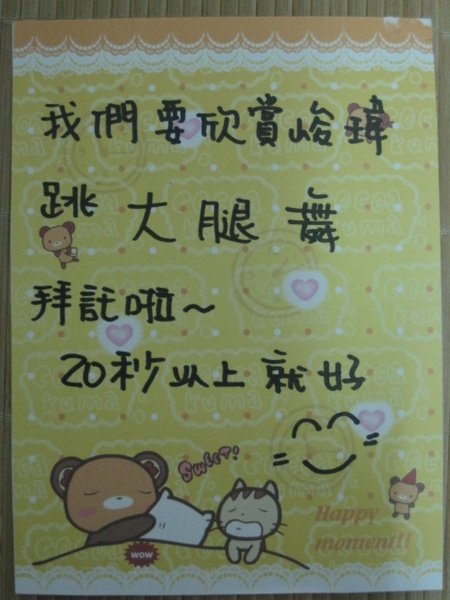 我們要欣賞峻瑋
跳大腿舞
拜託啦～
20秒以上就好
Sweet!
Happy
moment!!
WOW